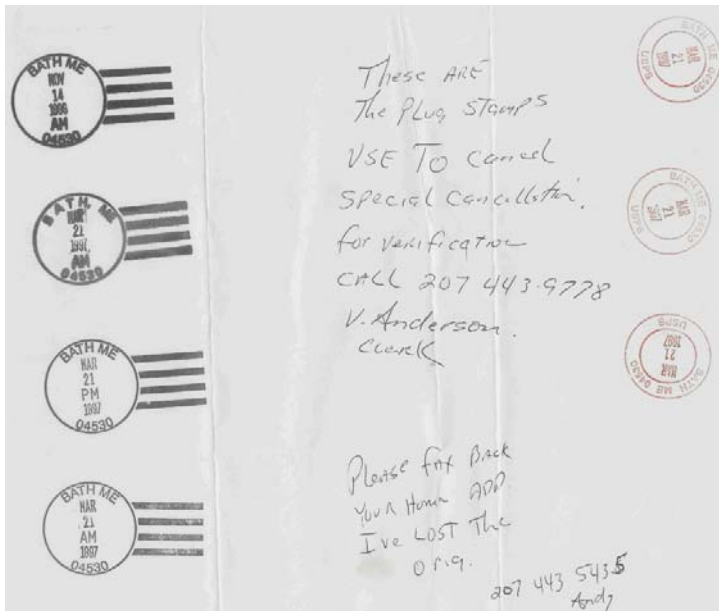 BATH ME
NOV
14
1996
AM
04530
BATH, ME
MAR
21
1997
AM
04530
BATH ME
MAR
21
PM
1997
04530
BATH ME
MAR
21
AM
1997
04530
These ARE
The Plug Stamps
USE To Cancel
Special Cancellation.
for verification
CALL 207 443-9778
V. Anderson.
Clerk
Please FAX Back
Your Home ADD
I've LOST The
orig.
207 443 5435
Andy
BATH ME 04530
MAR
21
1997
USPS
BATH ME 04530
MAR
21
1997
USPS
BATH ME 04530
MAR
21
1997
USPS